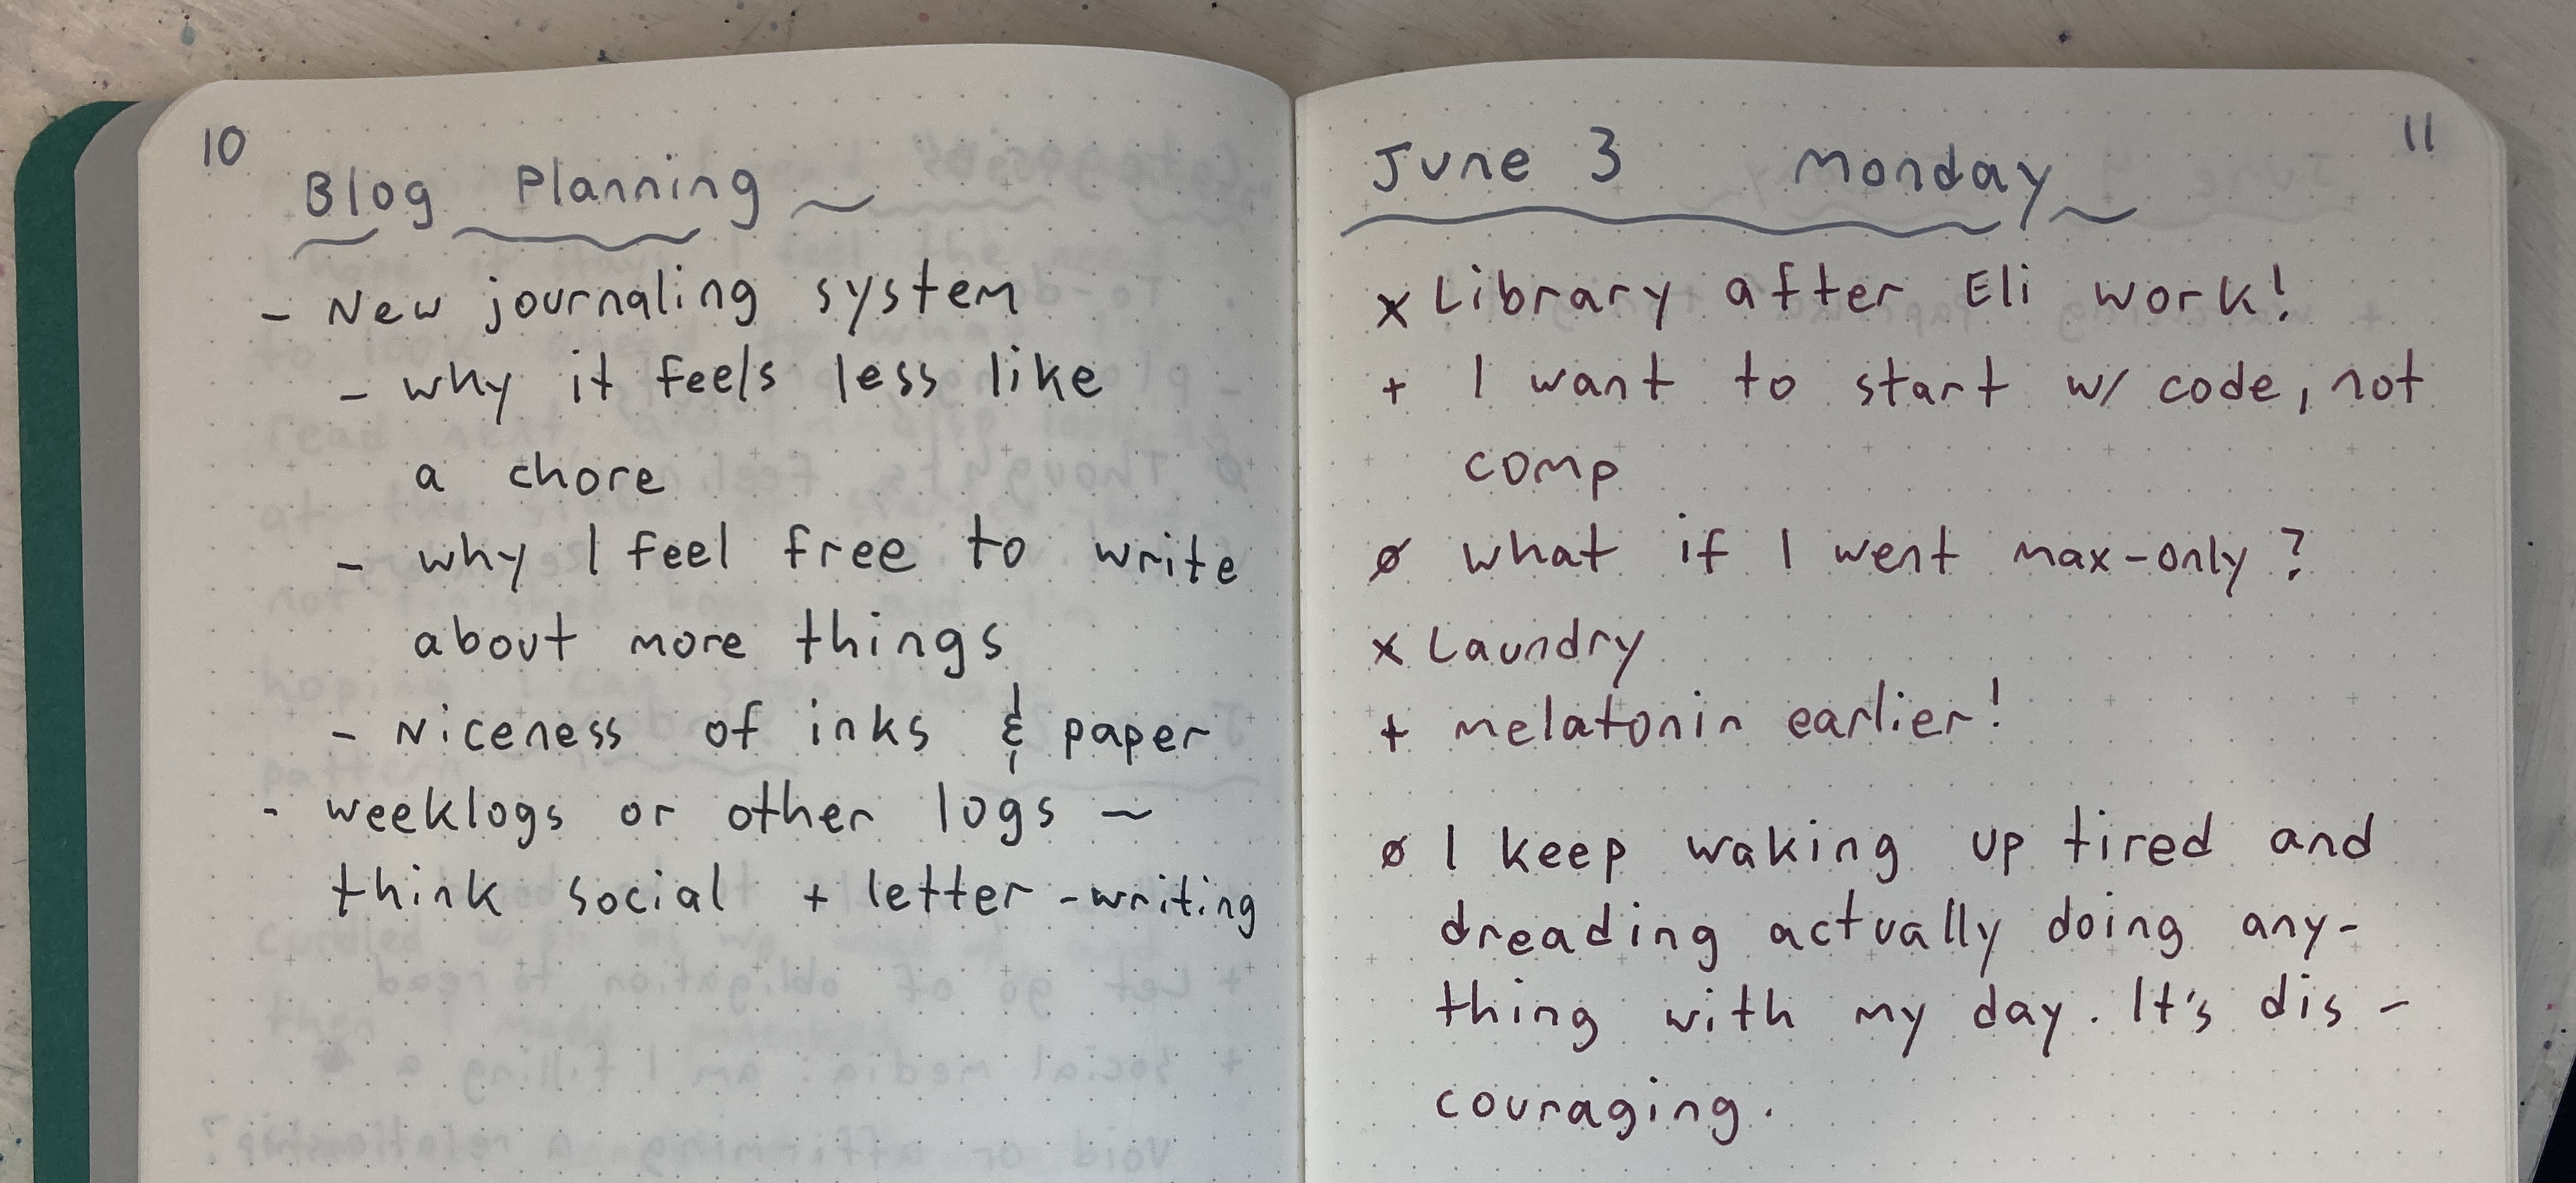 10
Blog Planning ~
- New journaling system
- why it feels less like
a chore
- why I feel free to write
about more things
- Niceness of inks & paper
- weeklogs or other logs ~
think social + letter-writing
11
June 3 Monday ~
x Library after Eli work!
+ I want to start w/ code, not
comp
ø what if I went max-only?
x Laundry
+ melatonin earlier!
ø I keep waking up tired and
dreading actually doing any-
thing with my day. It's dis-
couraging.